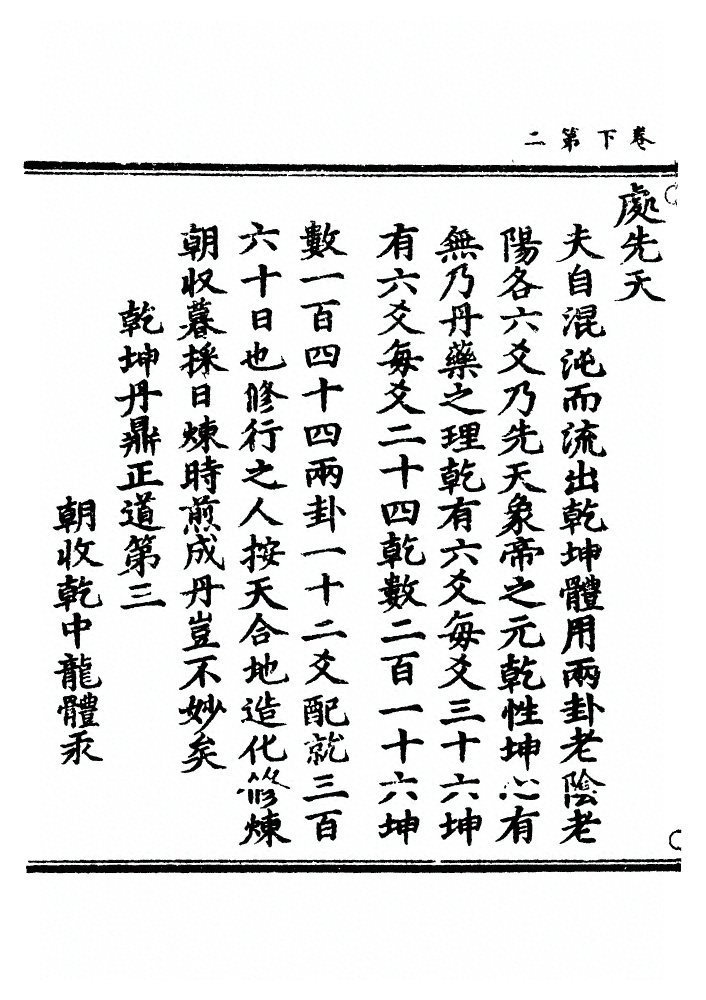 卷下第二
處先天
夫自混沌而流出乾坤體用兩卦老陰老
陽各六爻乃先天象帝之元乾性坤心有
無乃丹藥之理乾有六爻每爻三十六坤
有六爻每爻二十四乾數二百一十六坤
數一百四十四兩卦一十二爻配就三百
六十日也修行之人按天合地造化修煉
朝收暮採日煉時煎成丹豈不妙矣
乾坤丹鼎正道第三
朝收乾中龍體汞